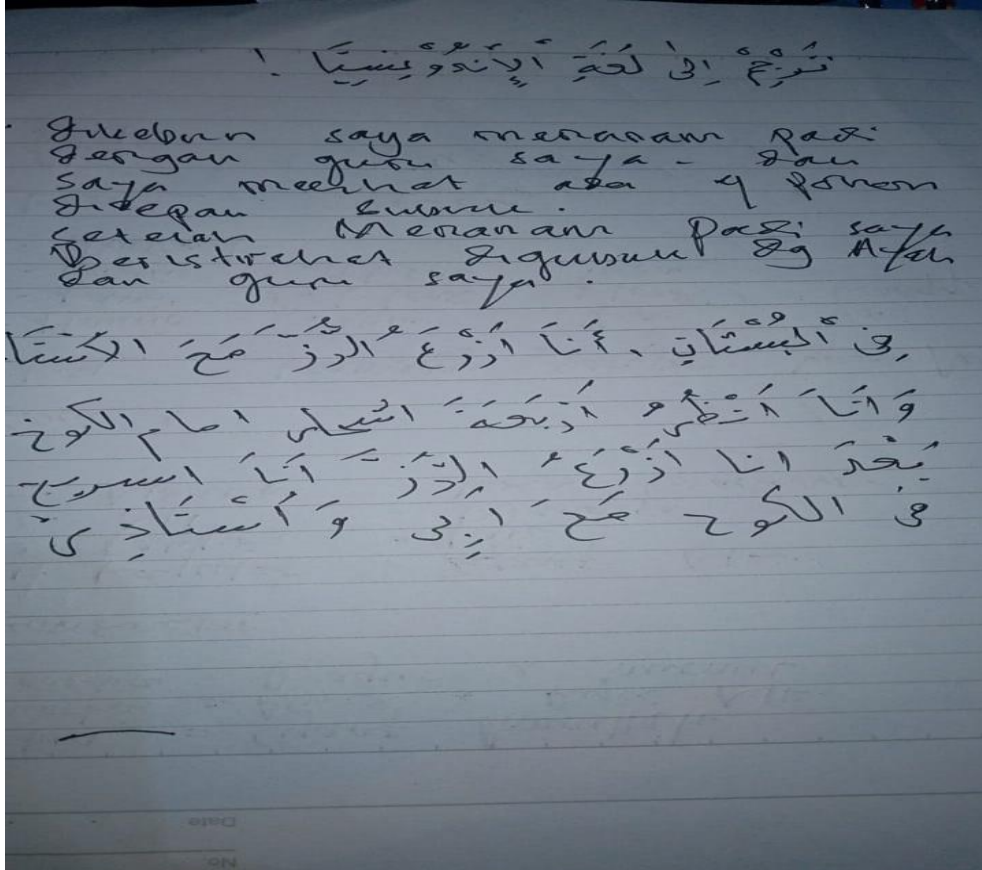 تَرْجِمْ إِلَى لُغَةِ ألإِنْدُوْنِيْسِيَّا .!
Dikebun saya menanam padi
dengan guru saya - dan
saya meelihat ada 4 pohon
didepan Gubuk.
setelah Menanam Padi saya
Beristirehat digubuk dg Ayah
dan guru saya.
فِى ٱلبُسْتَانِ ، أَنَا أَزْرَعُ الرُزَّ مَعَ الاُسْتَا
وَ اَنَا اَنْظُرُ اَرْبَعَةَ امام الكوخ
بَعْدَ انا اَزْرَعُ الرُزَّ اَنَا
فى الكوخ مَعَ اَبِى وَ اُسْتَاذِىْ
Date
No